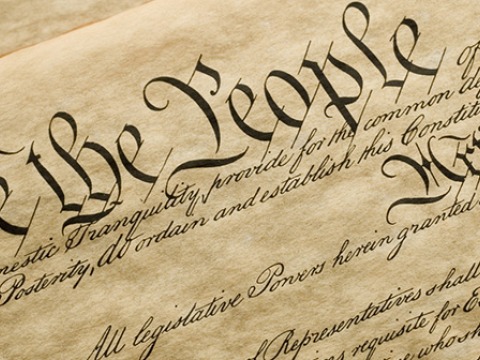 the People of
mestic Tranquility, provide for the common
Posterity, do ordain and establish this Constitu
All legislative Powers herein granted
of Representatives shall
requisite for
who sh